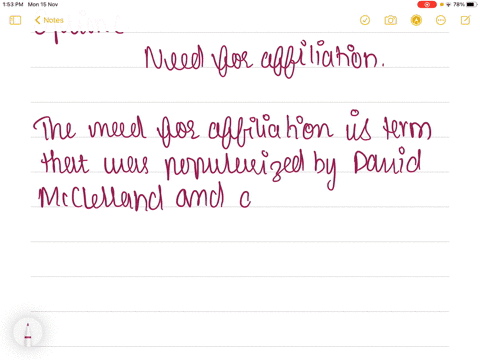 1:53 PM Mon 15 Nov
78%
Notes
Need for affiliation.
The need for affiliation is term
that was populerized by David
McClelland and